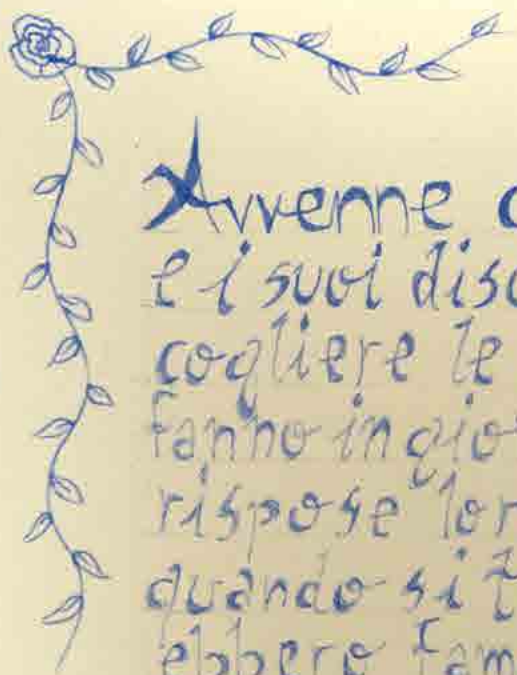 Avvenne c
e i suoi disc
cogliere le
fanno in gio
rispose lor
quando si t
ebbero fam